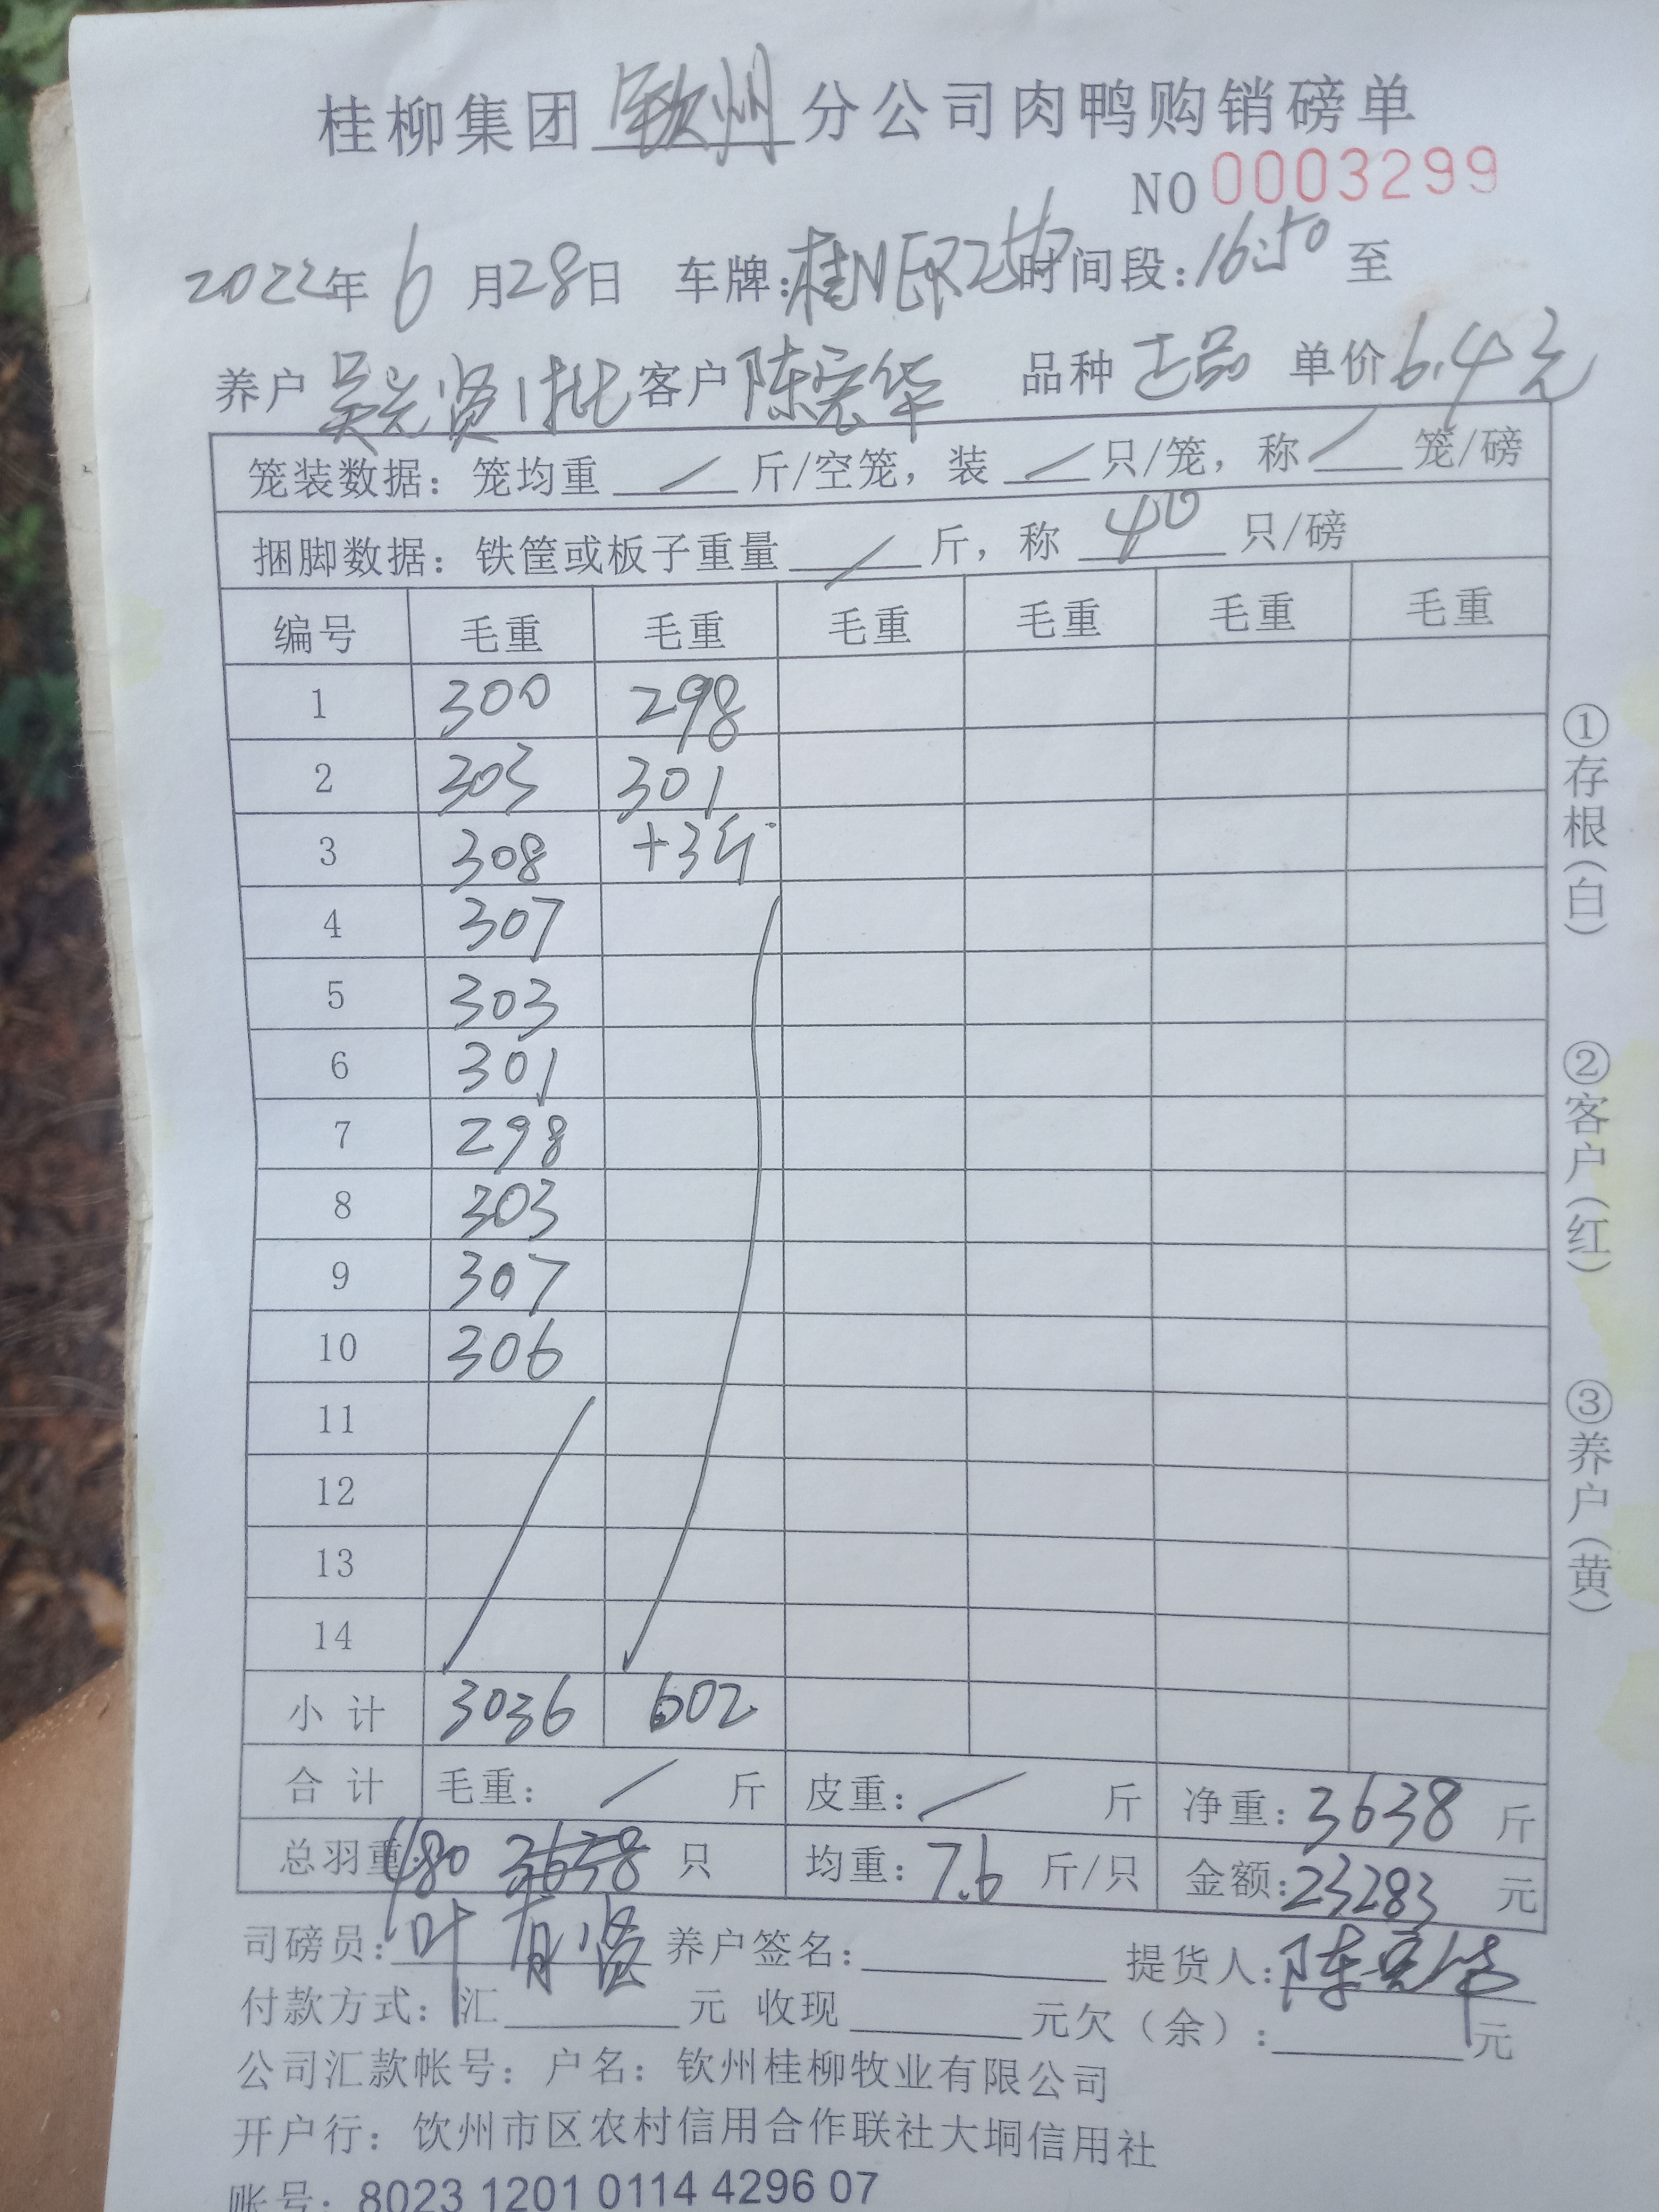 桂柳集团 钦州 分公司肉鸭购销磅单
NO 0003299
2022年 6 月28日 车牌: 时间段: 16:50 至
养户 吴 贤1批 客户 陈宏华 品种 正品 单价 6.4元
笼装数据: 笼均重 / 斤/空笼, 装 / 只/笼, 称 / 笼/磅
捆脚数据: 铁筐或板子重量 / 斤, 称 40 只/磅
编号 毛重 毛重 毛重 毛重 毛重 毛重
1 300 298
2 303 301
3 308 +3斤
4 307
5 303
6 301
7 298
8 303
9 307
10 306
11
12
13
14
小计 3036 602
合计 毛重: / 斤 皮重: / 斤 净重: 3638 斤
总羽重: 480 3638 只 均重: 7.6 斤/只 金额: 23283 元
司磅员: 叶有贤 养户签名: 提货人: 陈宏华
付款方式: 汇 元 收现 元欠(余): 元
公司汇款帐号: 户名: 钦州桂柳牧业有限公司
开户行: 钦州市区农村信用合作联社大垌信用社
账号: 8023 1201 0114 4296 07
①存根(白)
②客户(红)
③养户(黄)